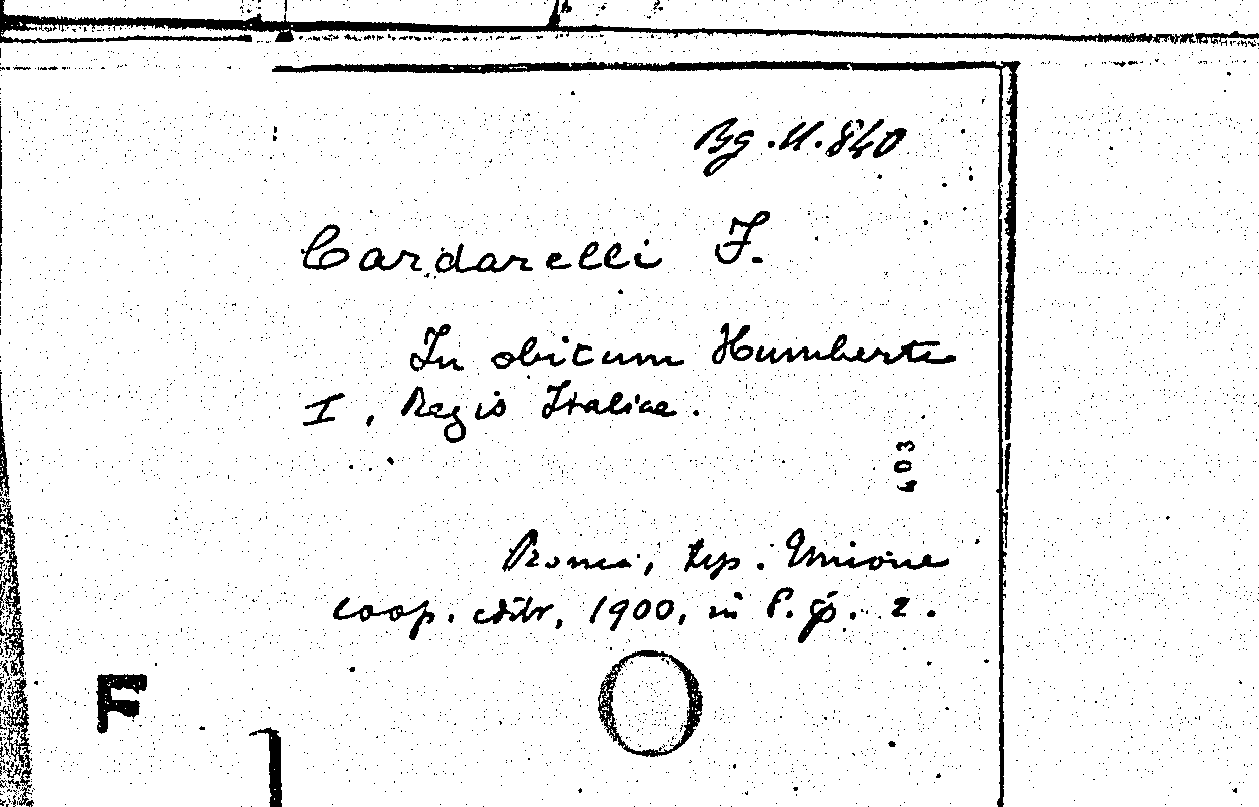 Bg.M.840
Cardarelli F.
In obitum Humberti
I, Regis Italiae.
403
Roma, typ. Unione
coop. editr, 1900, in 8. p. 2.
F